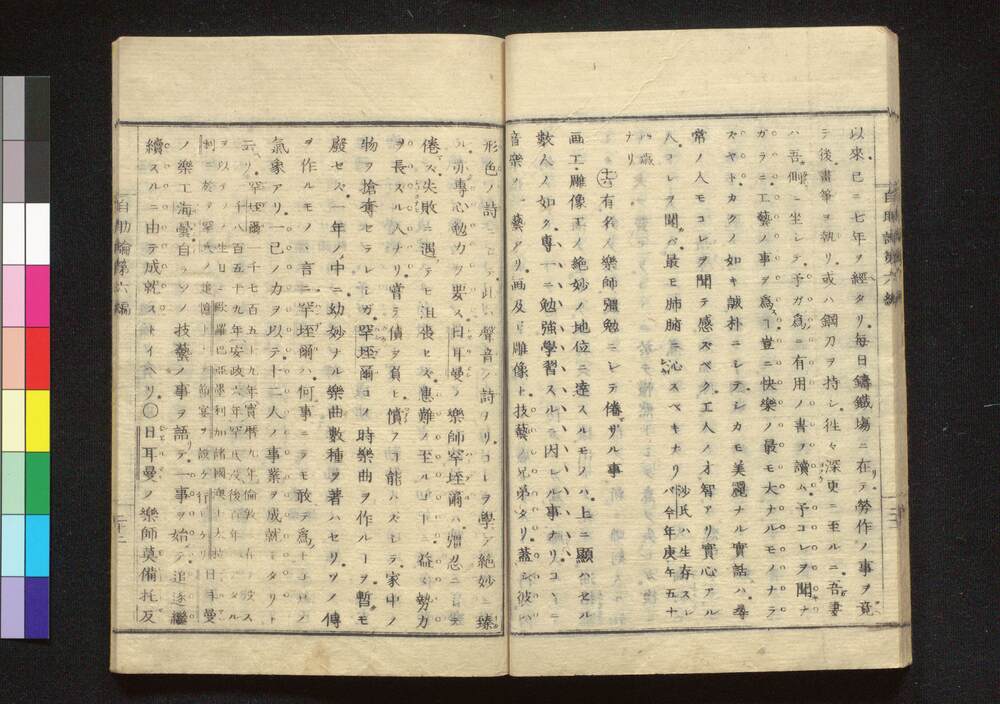 以來已ニ七年ヲ經タリ每日鑄鐵場ニ在テ勞作ノ事ヲ竟
テ後畫筆ヲ執リ或ハ鋼刀ヲ持シ往々深更ニ至ルニ吾妻
ハ吾側ニ坐シテ予ガ爲ニ有用ノ書ヲ讀ム予コレヲ聞ナ
ガラニ工藝ノ事ヲ爲ス豈ニ快樂ノ最モ大ナルモノナラ
ズヤトカクノ如キ誠朴ニシテシカモ美麗ナル實話ハ尋
常ノ人モコレヲ聞テ感ズベク工人ノ才智アリ實心アル
人コレヲ聞バ最モ肺腑ニ沁スベキナリ沙氏ハ生存スレバ今年庚午五十
八歳
ナリ
有名ノ樂師彊勉ニシテ倦ザル事
画工雕像工ノ絕妙ノ地位ニ達スルモノハ上ニ顯ハセル
數人ノ如ク專一ニ勉強學習スルニ因レル事ナリコヽニ
音樂ノ一藝アリ画及ビ雕像ト技藝ノ兄弟タリ蓋シ彼ハ
形色ノ詩ニシテ此ハ聲音ノ詩ナリコレヲ學デ絕妙ニ臻
ル亦專心勤力ヲ要ス日耳曼ノ樂師罕垤爾ハ彊忍ニシテ
倦ズ失敗ニ遇テモ沮喪セズ患難ノ至ルゴトニ益ス勢力
ヲ長ズル人ナリ嘗テ債ヲ負ヒ償フコ能ハズシテ家中ノ
物ヲ搶奪セラレシガ罕垤爾コノ時樂曲ヲ作ルヿヲ暫モ
廢セズ一年ノ中ニ幼妙ナル樂曲數種ヲ著ハセリソノ傳
ヲ作ルモノヽ言ニ罕垤爾ハ何事ニテモ敢テ爲ントスルノ
氣象アリ一己ノ力ヲ以テ十二人ノ事業ヲ成就シタリト
云ヘリ罕垤爾一千七百五十九年寶曆九年倫敦ニ在テ歿ス
一千八百五十九年安政六年罕氏歿後百年ニ
ノ樂工海曇自ラソノ技藝ノ事ヲ語テ一事ヲ始テ追逐繼
續スルニ由テ成就ストイヘリ○日耳曼ノ樂師莫備托反
自助論第六編